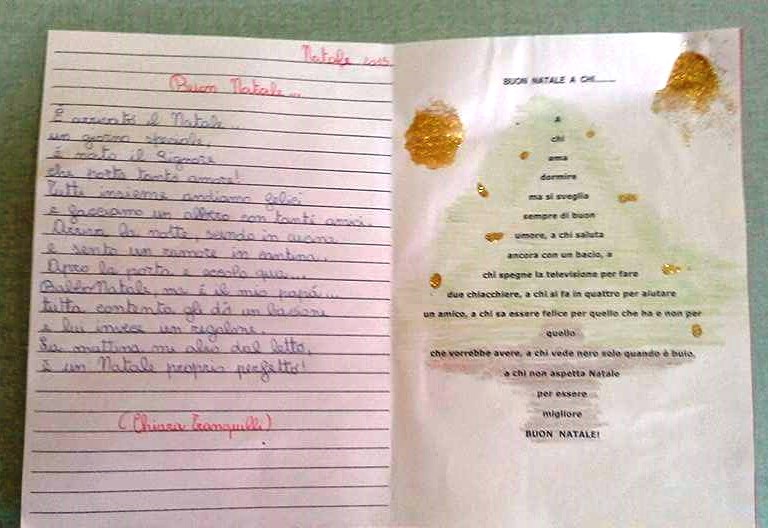 Natale 2015
Buon Natale...
È arrivato il Natale...
un giorno speciale,
è nato il Signore
che porta tanto amore!
Tutti insieme andiamo felici
e facciamo un albero con tanti amici.
Arriva la notte, scendo in cucina
e sento un rumore in cantina.
Apro la porta e eccolo qua...
Babbo Natale, ma è il mio papà...
tutta contenta gli dò un bacione
e lui invece un regalone.
La mattina mi alzo dal letto,
è un Natale proprio perfetto!
(Chiara Tranquilli)
BUON NATALE A CHI........
A
chi
ama
dormire
ma si sveglia
sempre di buon
umore, a chi saluta
ancora con un bacio, a
chi spegne la televisione per fare
due chiacchiere, a chi si fa in quattro per aiutare
un amico, a chi sa essere felice per quello che ha e non per
quello
che vorrebbe avere, a chi vede nero solo quando è buio,
a chi non aspetta Natale
per essere
migliore
BUON NATALE!